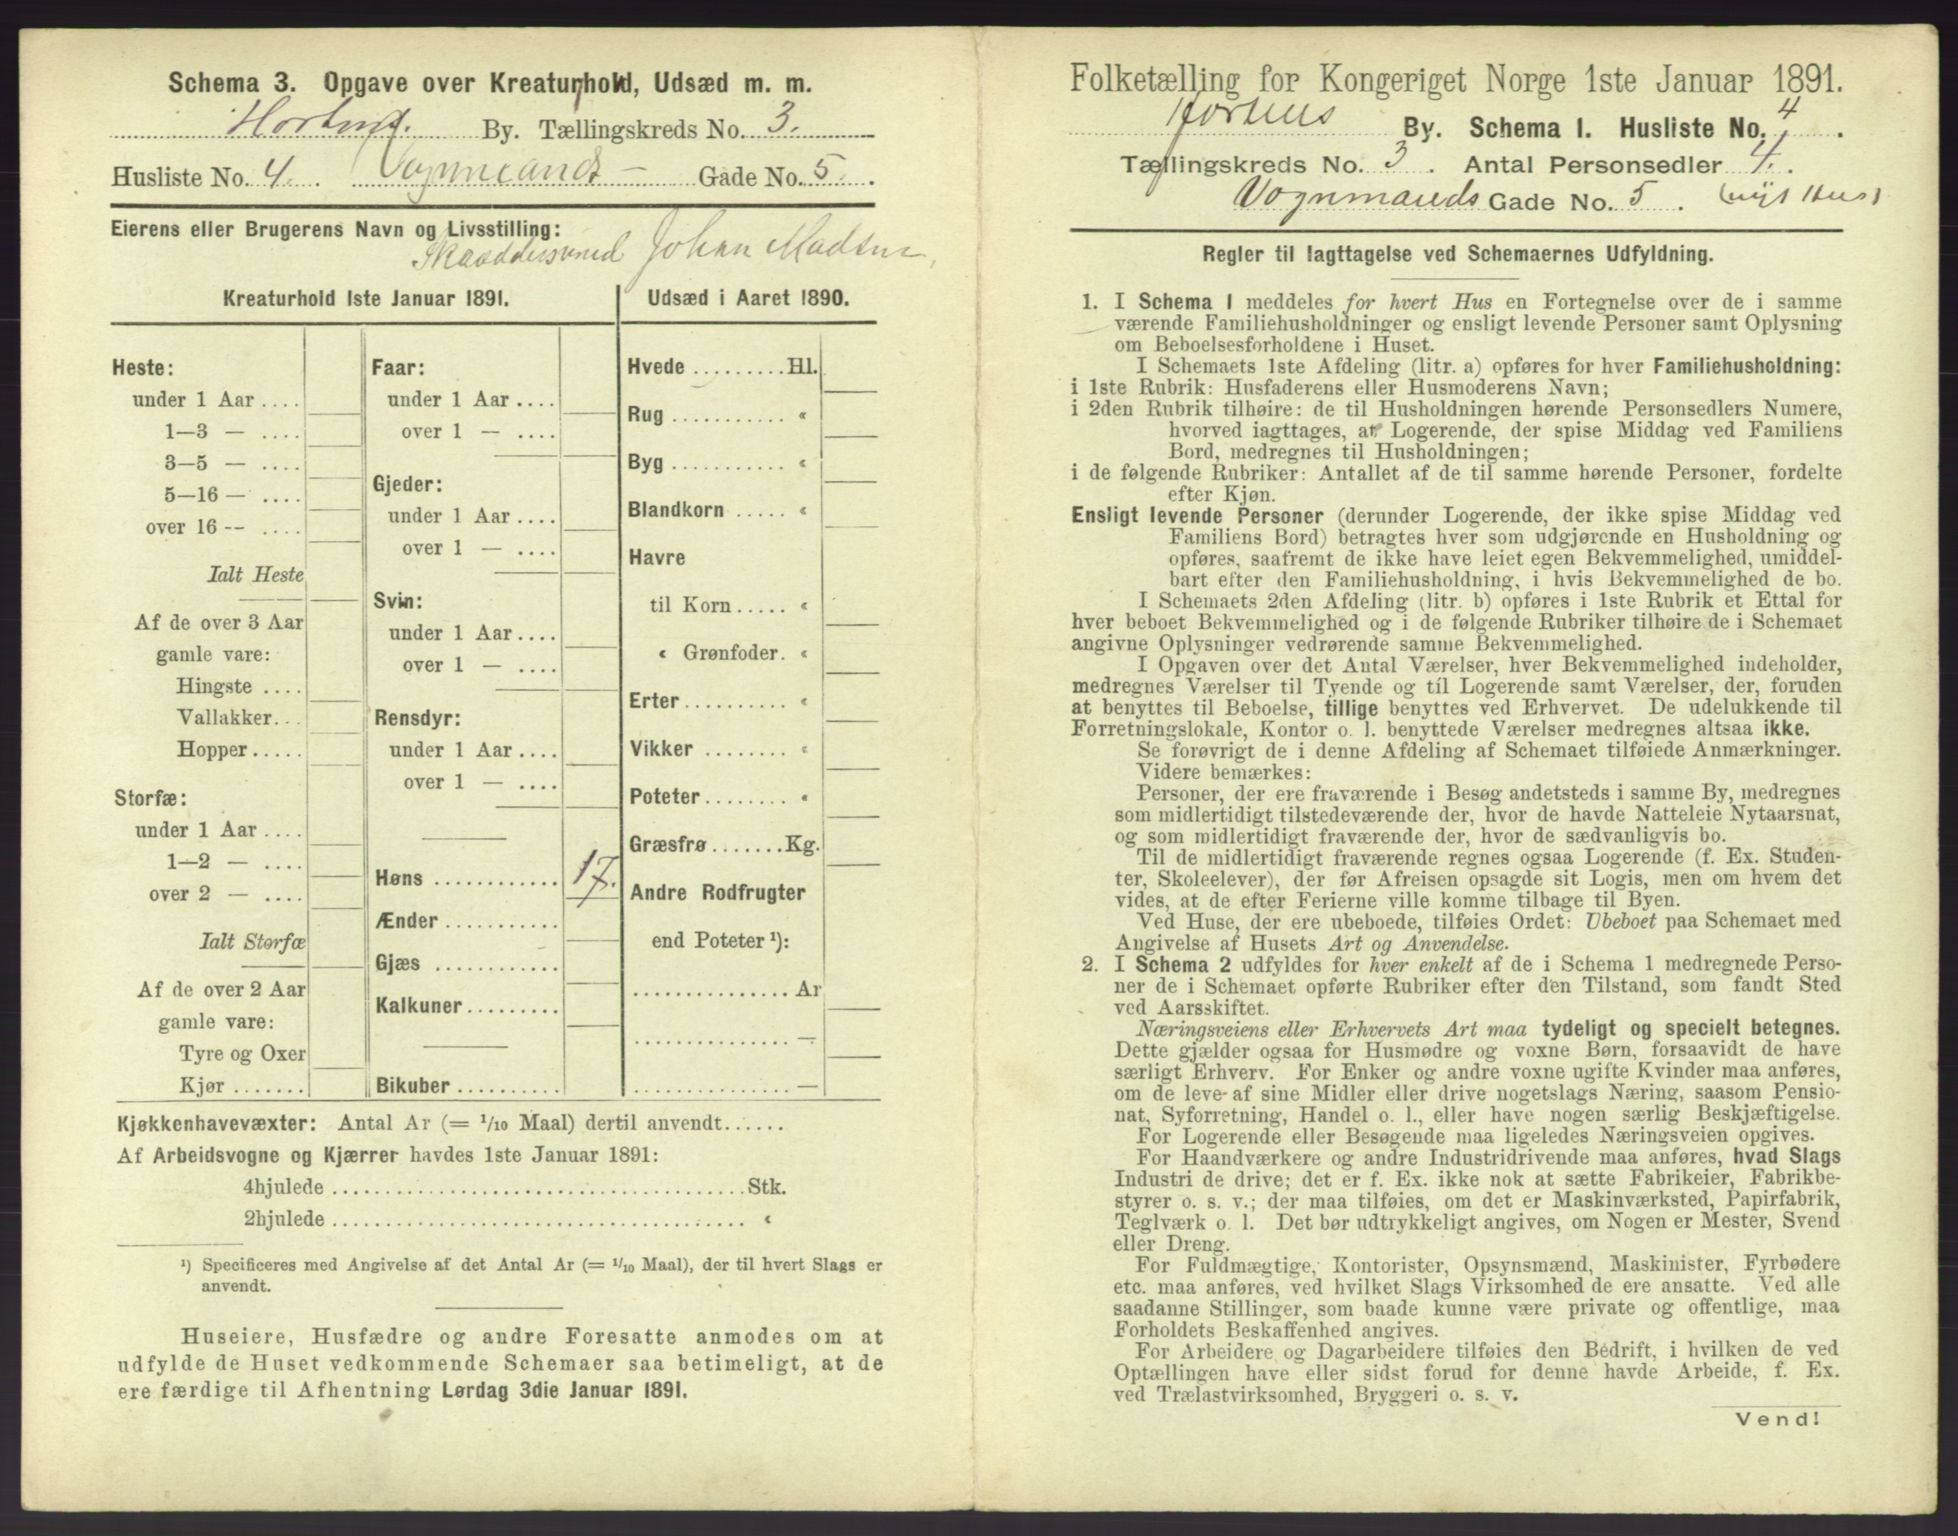 Schema 3. Opgave over Kreaturhold, Udsæd m. m.
By. Tællingskreds No. 3.
Husliste No. 4. Vognmands- Gade No. 5.
Eierens eller Brugerens Navn og Livsstilling:
Johan Madsen,
Kreaturhold 1ste Januar 1891.
Heste:
under 1 Aar ....
1—3 — ....
3—5 — ....
5—16 — ....
over 16 -- ....
Ialt Heste
Af de over 3 Aar
gamle vare:
Hingste ....
Vallakker...
Hopper.....
Storfæ:
under 1 Aar ....
1—2 — ....
over 2 — ....
Ialt Storfæ
Af de over 2 Aar
gamle vare:
Tyre og Oxer
Kjør .......
Faar:
under 1 Aar ....
over 1 — ....
Gjeder:
under 1 Aar ....
over 1 — ....
Svin:
under 1 Aar ....
over 1 — ....
Rensdyr:
under 1 Aar ....
over 1 — ....
Høns ............ 17.
Ænder ...........
Gjæs ............
Kalkuner.........
Bikuber ..........
Udsæd i Aaret 1890.
Hvede .........Hl.
Rug ........... «
Byg ........... «
Blandkorn ..... «
Havre
til Korn..... «
« Grønfoder. «
Erter.......... «
Vikker ........ «
Poteter........ «
Græsfrø.......Kg.
Andre Rodfrugter
end Poteter ¹):
............... Ar
............... —
............... —
Kjøkkenhavevæxter: Antal Ar (= 1/10 Maal) dertil anvendt......
Af Arbeidsvogne og Kjærrer havdes 1ste Januar 1891:
4hjulede ....................................Stk.
2hjulede .................................... «
¹) Specificeres med Angivelse af det Antal Ar (= 1/10 Maal), der til hvert Slags er
anvendt.
Huseiere, Husfædre og andre Foresatte anmodes om at
udfylde de Huset vedkommende Schemaer saa betimeligt, at de
ere færdige til Afhentning Lørdag 3die Januar 1891.
Folketælling for Kongeriget Norge 1ste Januar 1891.
By. Schema 1. Husliste No. 4.
Tællingskreds No. 3. Antal Personsedler 4.
Vognmands Gade No. 5. (nyt Hus)
Regler til Iagttagelse ved Schemaernes Udfyldning.
1. I Schema 1 meddeles for hvert Hus en Fortegnelse over de i samme
værende Familiehusholdninger og ensligt levende Personer samt Oplysning
om Beboelsesforholdene i Huset.
I Schemaets 1ste Afdeling (litr. a) opføres for hver Familiehusholdning:
i 1ste Rubrik: Husfaderens eller Husmoderens Navn;
i 2den Rubrik tilhøire: de til Husholdningen hørende Personsedlers Numere,
hvorved iagttages, at Logerende, der spise Middag ved Familiens
Bord, medregnes til Husholdningen;
i de følgende Rubriker: Antallet af de til samme hørende Personer, fordelte
efter Kjøn.
Ensligt levende Personer (derunder Logerende, der ikke spise Middag ved
Familiens Bord) betragtes hver som udgjørende en Husholdning og
opføres, saafremt de ikke have leiet egen Bekvemmelighed, umiddel-
bart efter den Familiehusholdning, i hvis Bekvemmelighed de bo.
I Schemaets 2den Afdeling (litr. b) opføres i 1ste Rubrik et Ettal for
hver beboet Bekvemmelighed og i de følgende Rubriker tilhøire de i Schemaet
angivne Oplysninger vedrørende samme Bekvemmelighed.
I Opgaven over det Antal Værelser, hver Bekvemmelighed indeholder,
medregnes Værelser til Tyende og til Logerende samt Værelser, der, foruden
at benyttes til Beboelse, tillige benyttes ved Erhvervet. De udelukkende til
Forretningslokale, Kontor o. l. benyttede Værelser medregnes altsaa ikke.
Se forøvrigt de i denne Afdeling af Schemaet tilføiede Anmærkninger.
Videre bemærkes:
Personer, der ere fraværende i Besøg andetsteds i samme By, medregnes
som midlertidigt tilstedeværende der, hvor de havde Natteleie Nytaarsnat,
og som midlertidigt fraværende der, hvor de sædvanligvis bo.
Til de midlertidigt fraværende regnes ogsaa Logerende (f. Ex. Studen-
ter, Skoleelever), der før Afreisen opsagde sit Logis, men om hvem det
vides, at de efter Ferierne ville komme tilbage til Byen.
Ved Huse, der ere ubeboede, tilføies Ordet: Ubeboet paa Schemaet med
Angivelse af Husets Art og Anvendelse.
2. I Schema 2 udfyldes for hver enkelt af de i Schema 1 medregnede Perso-
ner de i Schemaet opførte Rubriker efter den Tilstand, som fandt Sted
ved Aarsskiftet.
Næringsveiens eller Erhvervets Art maa tydeligt og specielt betegnes.
Dette gjælder ogsaa for Husmødre og voxne Børn, forsaavidt de have
særligt Erhverv. For Enker og andre voxne ugifte Kvinder maa anføres,
om de leve af sine Midler eller drive nogetslags Næring, saasom Pensio-
nat, Syforretning, Handel o. l., eller have nogen særlig Beskjæftigelse.
For Logerende eller Besøgende maa ligeledes Næringsveien opgives.
For Haandværkere og andre Industridrivende maa anføres, hvad Slags
Industri de drive; det er f. Ex. ikke nok at sætte Fabrikeier, Fabrikbe-
styrer o. s. v.; der maa tilføies, om det er Maskinværksted, Papirfabrik,
Teglværk o. l. Det bør udtrykkeligt angives, om Nogen er Mester, Svend
eller Dreng.
For Fuldmægtige, Kontorister, Opsynsmænd, Maskinister, Fyrbødere
etc. maa anføres, ved hvilket Slags Virksomhed de ere ansatte. Ved alle
saadanne Stillinger, som baade kunne være private og offentlige, maa
Forholdets Beskaffenhed angives.
For Arbeidere og Dagarbeidere tilføies den Bedrift, i hvilken de ved
Optællingen have eller sidst forud for denne havde Arbeide, f. Ex.
ved Trælastvirksomhed, Bryggeri o. s. v.
Vend!